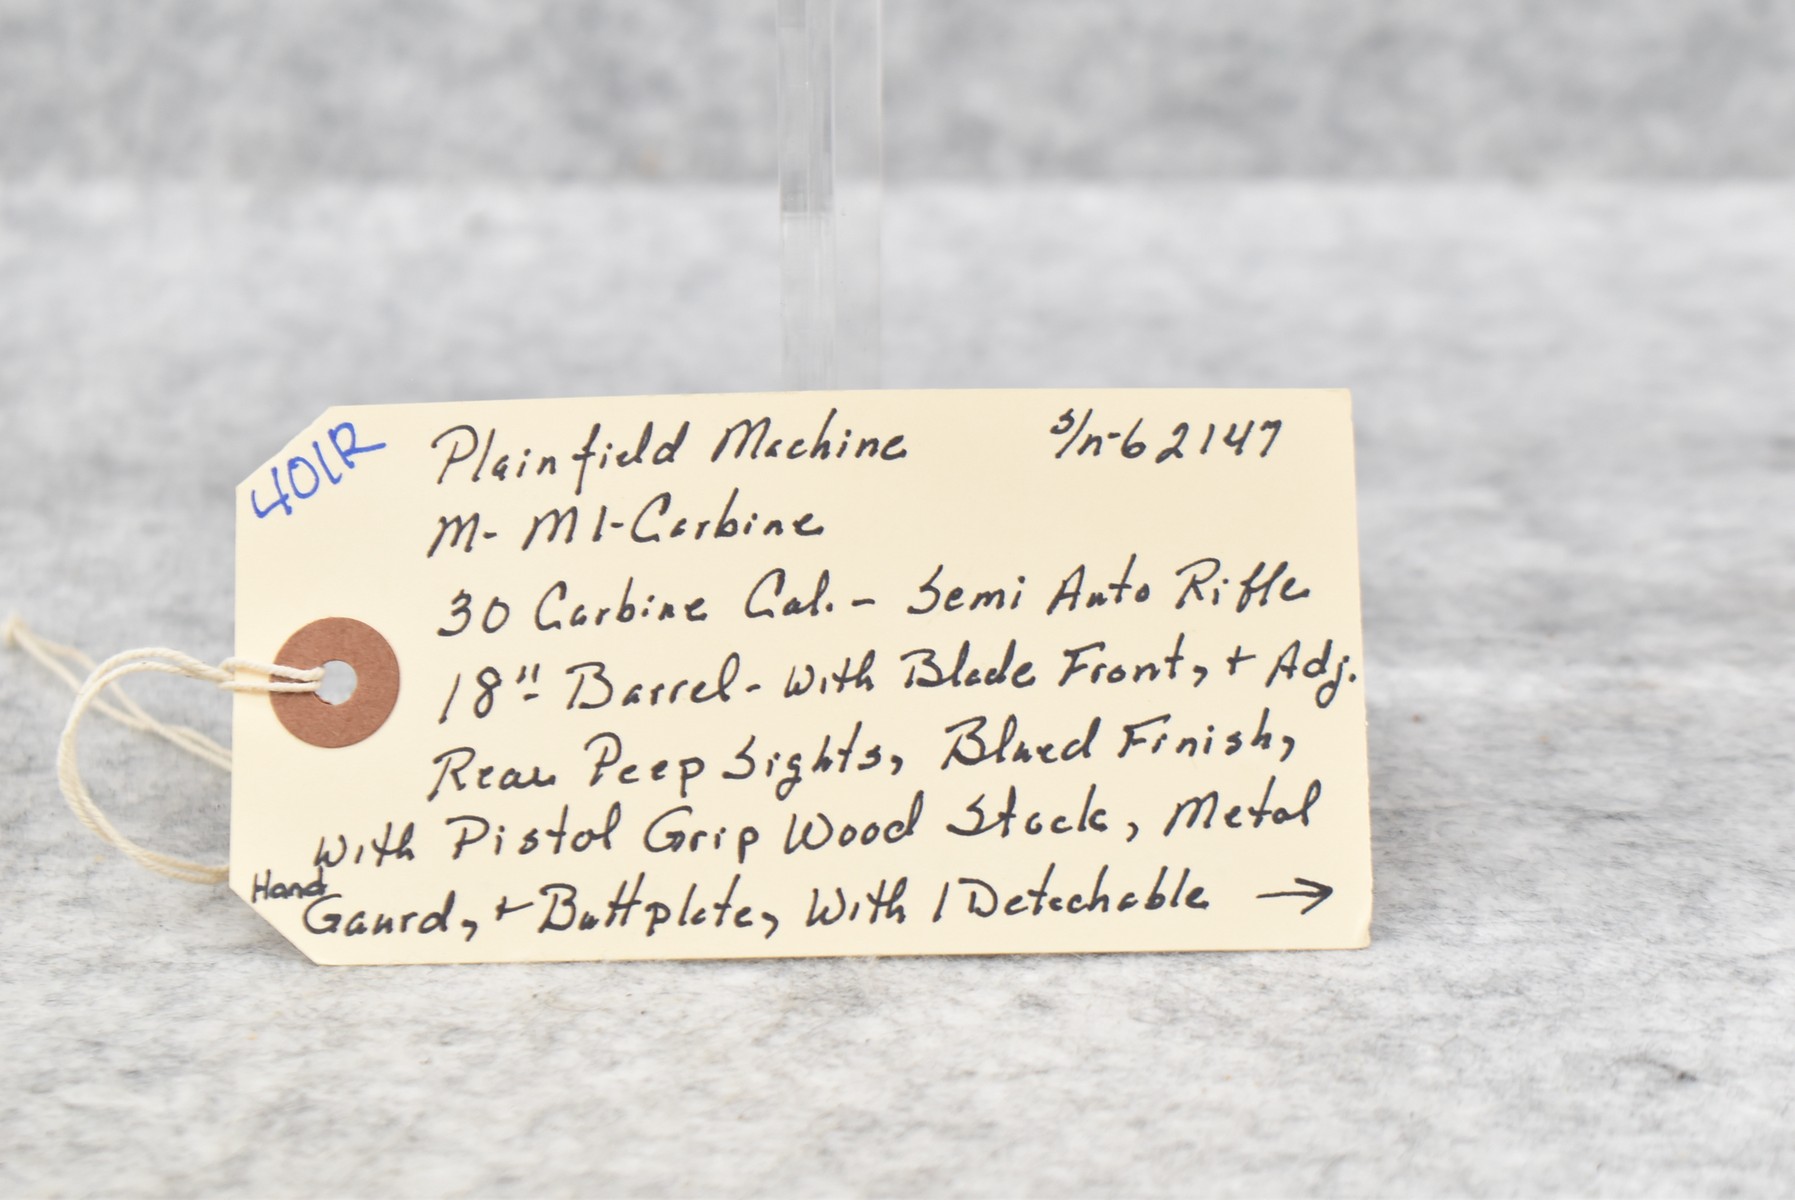 401R
Plainfield Machine s/n-62147
M- M1-Carbine
30 Carbine Cal. - Semi Auto Rifle
18"- Barrel - with Blade Front, + Adj.
Rear Peep Sights, Blued Finish,
with Pistol Grip Wood Stock, Metal
Hand
Gaurd, + Buttplate, With 1 Detachable →